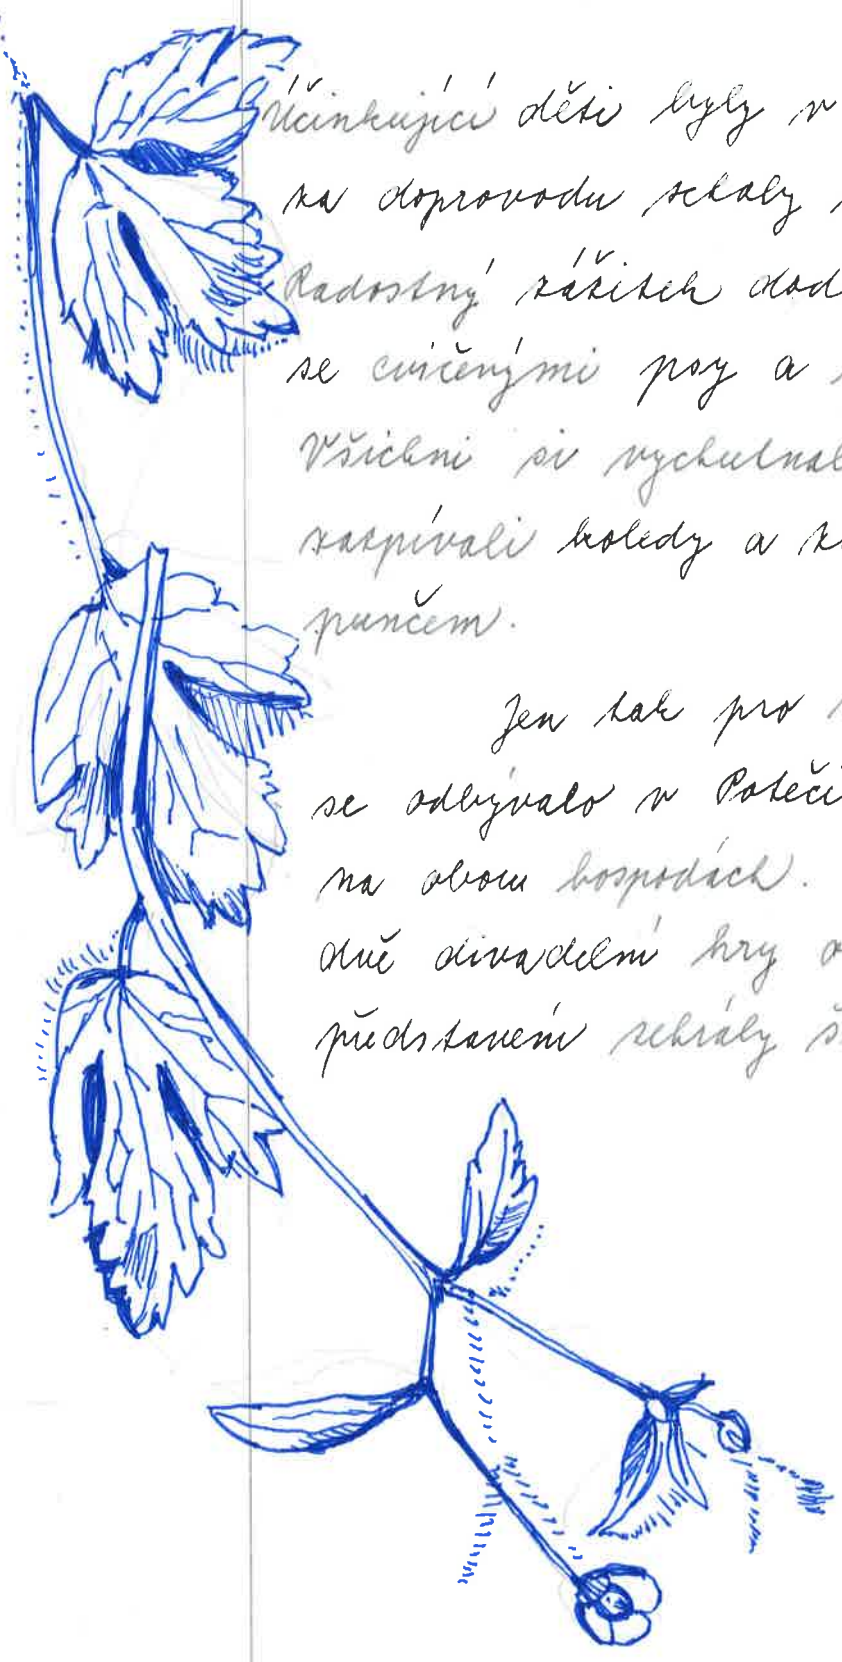 Účinkující děti byly v
za doprovodu schaly
Radostný zážitek dod
se cvičenými psy a
Všichni si vychutnal
zaspívali koledy a
punčem.
Jen tak pro
se odbývalo v Potěči
na obou hospodách.
dvě divadelní hry a
představení sehrály š